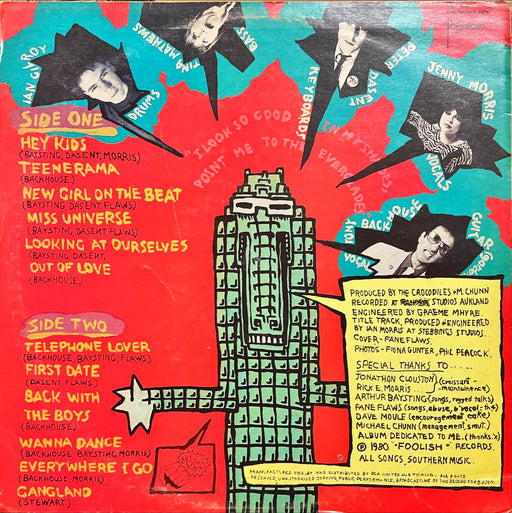 IAN GILROY
DRUMS
TINA MATHEWS
BASS
KEYBOARDS
PETER DASENT
JENNY MORRIS
VOCALS
TONY BACKHOUSE
VOCAL
GUITAR
"I LOOK SO GOOD IN MY SWIMS,
POINT ME TO THE EVERGLADES
SIDE ONE
HEY KIDS
(BAYSTING, DASENT, MORRIS)
TEENERAMA
(BACKHOUSE)
NEW GIRL ON THE BEAT
(BAYSTING, DASENT, FLAWS)
MISS UNIVERSE
(BAYSTING, DASENT, FLAWS)
LOOKING AT OURSELVES
(BAYSTING, DASENT,
OUT OF LOVE
(BACKHOUSE)
SIDE TWO
TELEPHONE LOVER
(BACKHOUSE, BAYSTING, FLAWS)
FIRST DATE
(DASENT, FLAWS)
BACK WITH
THE BOYS
(BACKHOUSE)
WANNA DANCE
(BACKHOUSE, BAYSTING, MORRIS)
EVERYWHERE I GO
(BACKHOUSE MORRIS)
GANGLAND
(STEWART)
PRODUCED BY THE CROCODILES & M. CHUNN
RECORDED AT STUDIOS AUKLAND
ENGINEERED BY GRAEME MHYRE.
TITLE TRACK, PRODUCED & ENGINEERED
BY IAN MORRIS AT STEBBINGS STUDIOS.
COVER - FANE FLAWS.
PHOTOS - FIONA GUNTER, PHIL PEACOCK.
SPECIAL THANKS TO.....
JONATHON CLOUSTON (croissant
RICK E. MORRIS - maintainence)
ARTHUR BAYSTING (songs, rugged talks)
FANE FLAWS (songs, abuse, b'vocal:t4)
DAVE MOULE (encouragement cake)
MICHAEL CHUNN (management, smut.)
ALBUM DEDICATED TO ME. (thanks.x)
© 1980 "FOOLISH" RECORDS.
ALL SONGS, SOUTHERN MUSIC.
MANUFACTURED FOR, BY AND DISTRIBUTED BY RCA LIMITED ALL RIGHTS
RESERVED, UNAUTHORISED COPYING, PUBLIC PERFORMANCE, BROADCASTING OF THIS RECORD FORBIDEN.